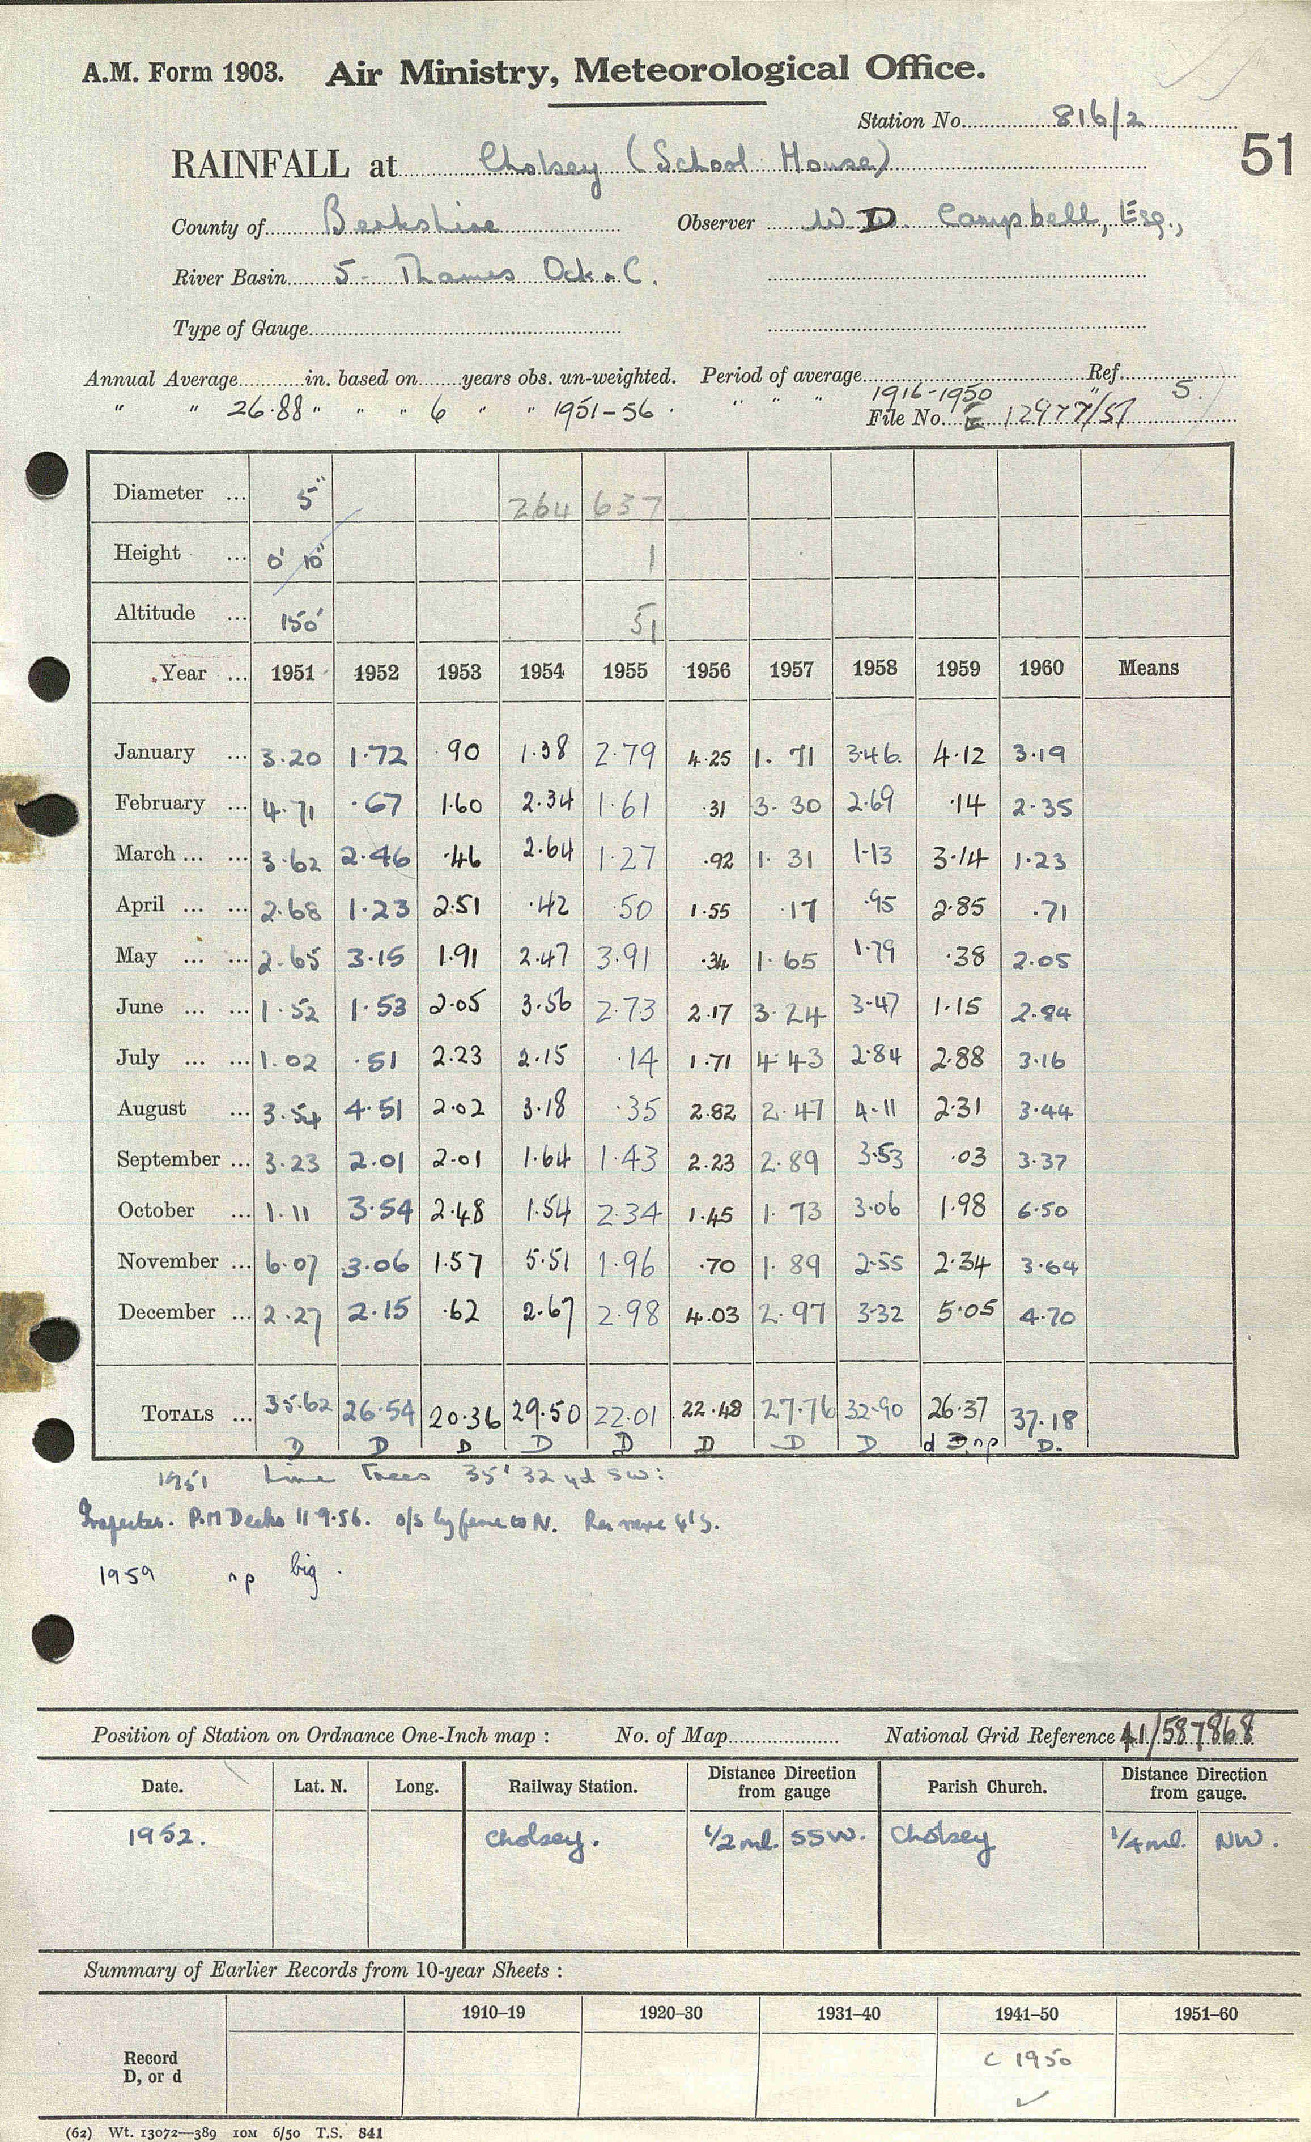 A.M. Form 1903. Air Ministry, Meteorological Office.
Station No. 816/2
51
RAINFALL at Cholsey (School House)
County of Berkshire Observer W. D. Campbell, Esq.,
River Basin 5 - Thames Ock &C.
Type of Gauge
Annual Average in. based on years obs. un-weighted. Period of average 1916-1950 Ref. 5.
" " 26.88 " " " 6 " " 1951-56. " " " "
File No. E 12977/57
Diameter ... 5" 264 637
Height ... 0' 10" 1
Altitude ... 150' 51
Year ... 1951 1952 1953 1954 1955 1956 1957 1958 1959 1960 Means
January ... 3.20 1.72 .90 1.38 2.79 4.25 1.71 3.46 4.12 3.19
February ... 4.71 .67 1.60 2.34 1.61 .31 3.30 2.69 .14 2.35
March ... ... 3.62 2.46 .46 2.64 1.27 .92 1.31 1.13 3.14 1.23
April ... ... 2.68 1.23 2.51 .42 .50 1.55 .17 .95 2.85 .71
May ... ... 2.65 3.15 1.91 2.47 3.91 .34 1.65 1.79 .38 2.05
June ... ... 1.52 1.53 2.05 3.56 2.73 2.17 3.24 3.47 1.15 2.84
July ... ... 1.02 .51 2.23 2.15 .14 1.71 4.43 2.84 2.88 3.16
August ... 3.54 4.51 2.02 3.18 .35 2.82 2.47 4.11 2.31 3.44
September ... 3.23 2.01 2.01 1.64 1.43 2.23 2.89 3.53 .03 3.37
October ... 1.11 3.54 2.48 1.54 2.34 1.45 1.73 3.06 1.98 6.50
November ... 6.07 3.06 1.57 5.51 1.96 .70 1.89 2.55 2.34 3.64
December ... 2.27 2.15 .62 2.67 2.98 4.03 2.97 3.32 5.05 4.70
TOTALS ... 35.62 26.54 20.36 29.50 22.01 22.48 27.76 32.90 26.37 37.18
D D D D D D D D d D np D.
1951 Lime Trees 35' 32 yd SW:
Inspector. P.M Deeks 11.9.56. o/s by fence to N. Remove 4' S.
1959 np big.
Position of Station on Ordnance One-Inch map : No. of Map National Grid Reference 41/587868
Date. Lat. N. Long. Railway Station. Distance from gauge Direction Parish Church. Distance from gauge. Direction
1952. Cholsey. 1/2 ml. SSW. Cholsey 1/4 ml. NW.
Summary of Earlier Records from 10-year Sheets :
1910–19 1920–30 1931–40 1941–50 1951–60
Record D, or d C 1950
(62) Wt. 13072—389 IOM 6/50 T.S. 841